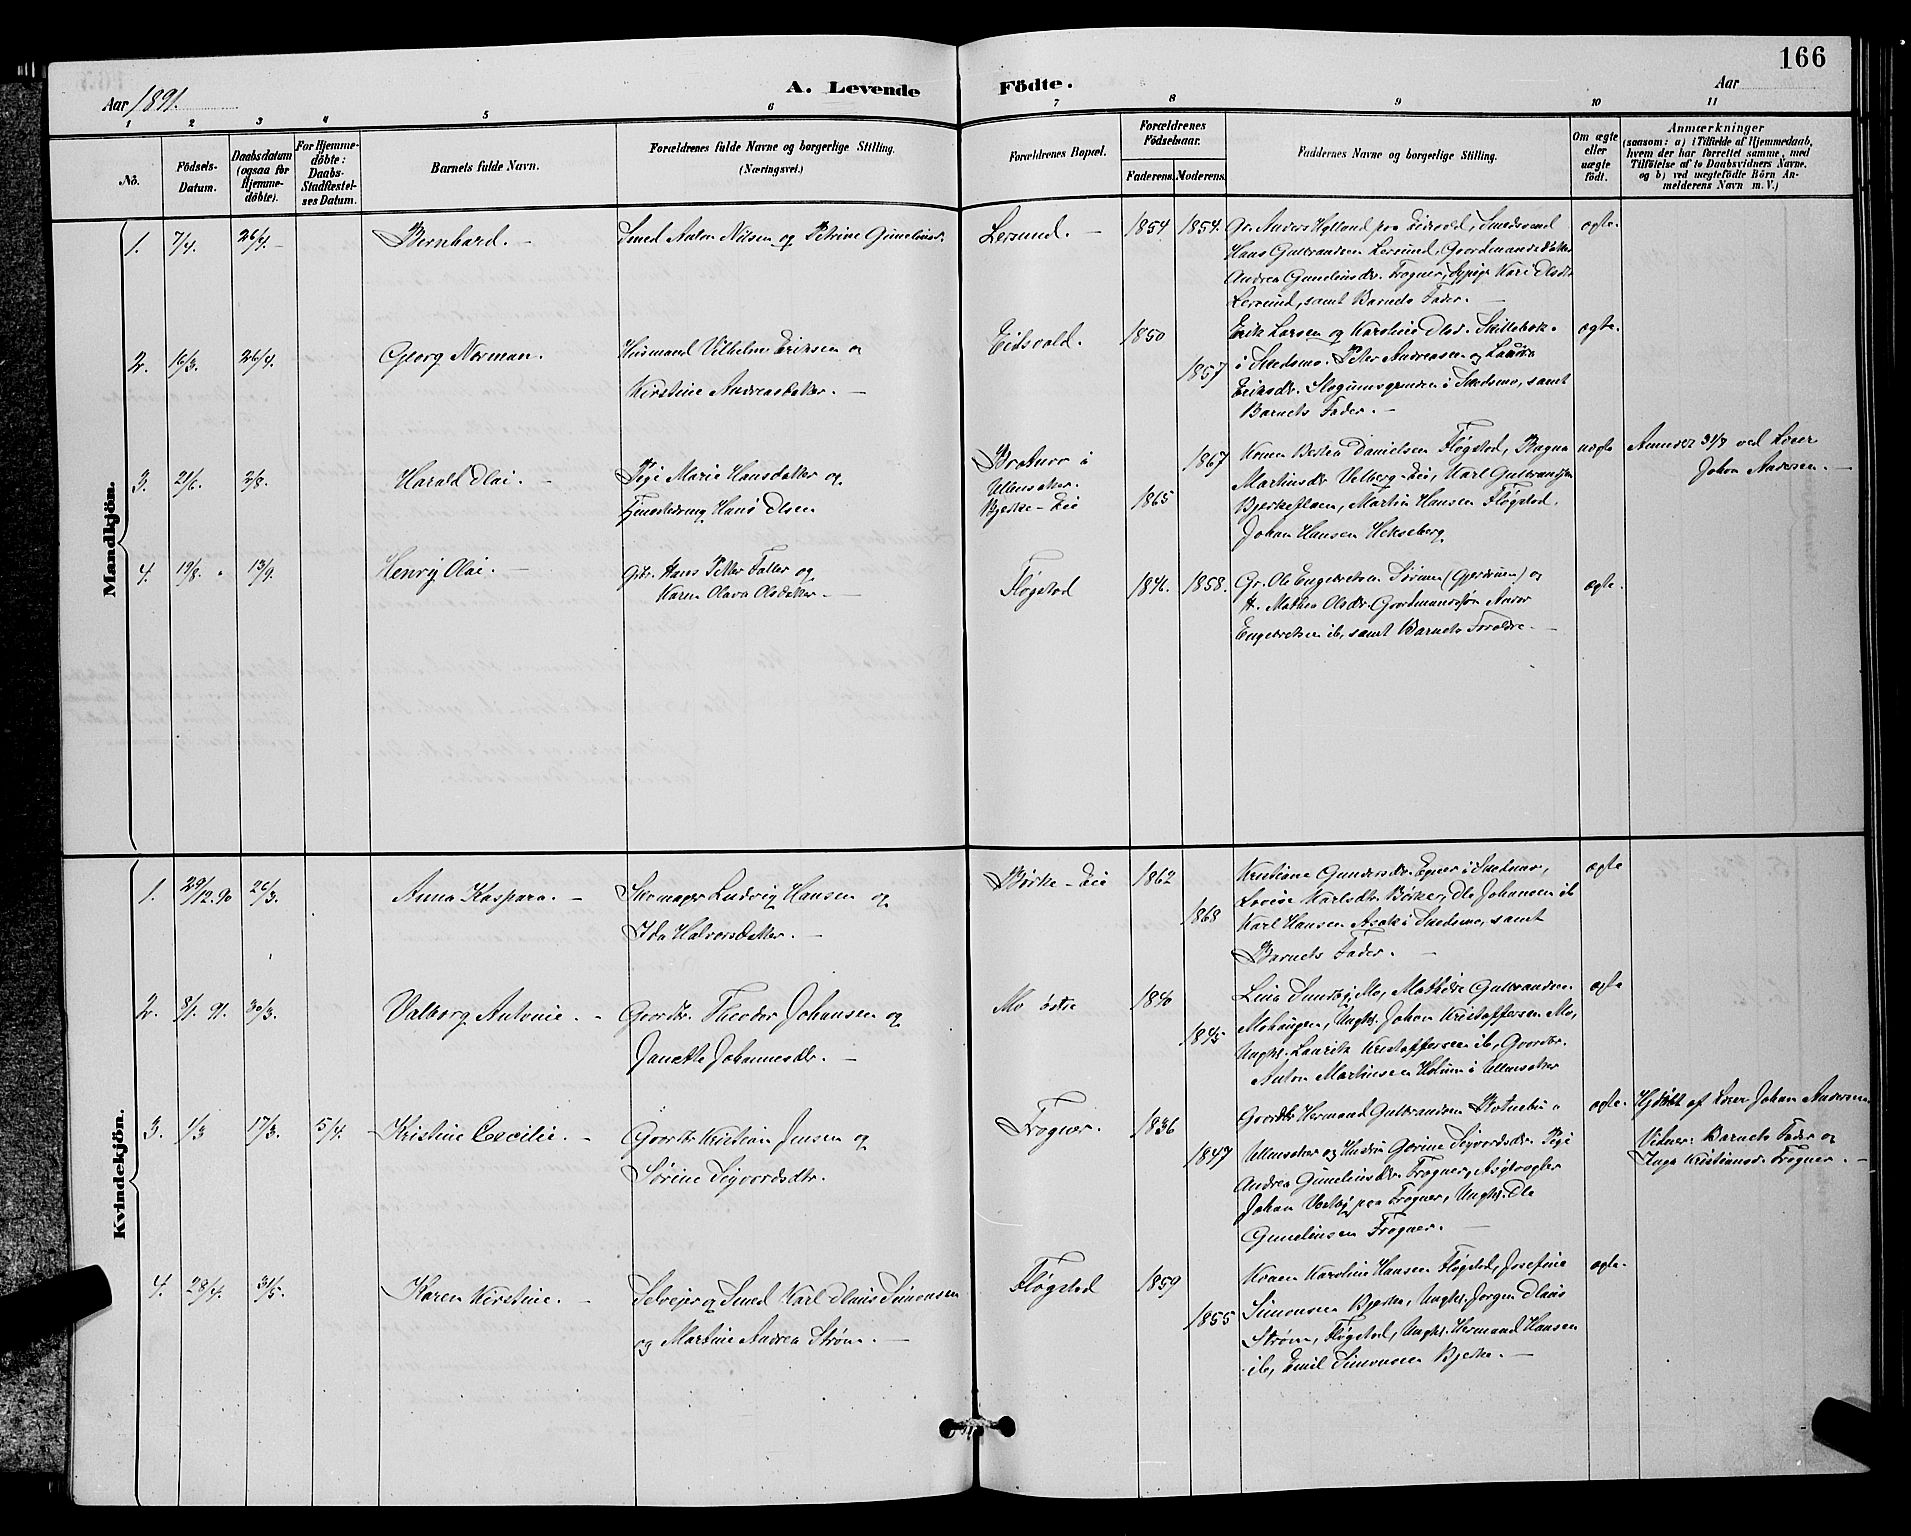 166
Aar 1891.
A. Levende Födte.
Aar
1 2 3 4 5 6 7 8 9 10 11
No.
Födsels-Datum.
Daabsdatum (ogsaa for Hjemme-döbte).
For Hjemme-döbte: Daabs-Stadfæstel-ses Datum.
Barnets fulde Navn.
Forældrenes fulde Navne og borgerlige Stilling.
(Næringsvei.)
Forældrenes Bopæl.
Forældrenes Födselsaar.
Faderens. Moderens.
Faddernes Navne og borgerlige Stilling.
Om ægte eller uægte født.
Anmærkninger
(saasom: a) i Tilfælde af Hjemmedaab,
hvem der har forrettet samme, med
Tilföielse af to Daabsvidners Navne.
og b) ved uægtefödte Börn An-
melderens Navn m. V.)
Mandkjön.
1. 7/4. 26/4. Bernhard. Smed Anton Nilsen og Petrine Gundersd. Lersund. 1854. 1854. Gr. Anders Hylland paa Eidsvold,
Hans Gulbrandsen Lersund, Gaardmandsdatter
Andrea Gundersdtr. Frogner, Pige Kari Olsdtr
Lersund, samt Barnets Fader.
ægte.
2. 16/3. 26/4. Georg Norman. Husmand Vilhelm Eriksen og
Kirstine Andreasdatter.
Eidsvold. 1850 1857
Erik Larsen og Karoline Olsd. Skillebæk
i Skedsmo. Peter Andreasen og Laura
Eriksdr. i Skedsmo, samt
Barnets Fader.
ægte.
3. 21/6. 2/8. Harald Olai. Pige Marie Hansdatter og
Hans Olsen
Brotnu i
Ullensaker.
Bjerke-Eie
1865 1867
Konen Danielsen Fløgstad,
Martinsdr. Velberg-Eie, Karl Gulbrandsen
Bjerkefloen, Martin Hansen Fløgstad,
Johan Hansen Hekseberg
uægte
Anmeldt 31/7 ved Lærer
Johan Andersen.
4. 19/8. 13/9. Henry Olai. Gbr. Hans Petter Faller og
Karen Olava Olsdatter.
Fløgstad 1846. 1858.
Gr. Ole Engebretsen Sørum (Gjerdrum) og
H. Mathea Olsdr. Gaardmandssøn Anders
Engebretsen ib, samt Barnets Forældre.
ægte.
Kvindekjön.
1. 29/12.90 26/3. Anna Kaspara. Skomager Ludvig Hansen og
Ida Halvorsdatter.
Bjerke-Eie 1862 1868
Kristiane Gundersdr. Egner i Skedsmo,
Lovise Karlsdtr. Bjerke, Ole Johansen ib
Karl Hansen Asak i Skedsmo, samt
Barnets Fader.
ægte
2. 8/1. 91. 30/3. Valborg Antonie. Gaardbr. Theodor Johansen og
Janette Johannesdtr.
Mo østre 1840 1845
Lina Sundby, Mo, Mathilde Gulbrandsen
Mohaugen, Ungk. Johan Kristoffersen Mo,
Ungk. Lauritz Kristoffersen ib, Gaardbr.
Anton Martinsen Holum i Ullensaker
ægte
3. 1/3 17/3. 5/4. Kristine Cecilie. Gaardbr Kristian Jensen og
Sørine Sigvordsdtr.
Frogner. 1836 1847
Gaardbr Hermand Gulbrandsen Rotnebu i
Ullensaker og Hustru Gorine Sigvordsdr. Pige
Andrea Gundersdr. Frogner,
Johan Vestby paa Frogner, Ungk. Ole
Gundersen Frogner.
ægte.
Hjdøbt af Lærer Johan Andersen
Vidner: Barnets Fader og
Inga Kristiansd. Frogner.
4. 28/4. 31/5. Karen Kirstine. Selveier og Smed Karl Olaus Simonsen
og Martine Andrea Strøm.
Fløgstad 1859 1855
Konen Karoline Hansen Fløgstad, Josefine
Simonsen Bjerke, Ungk. Jørgen Olaus
Strøm, Fløgstad, Ungk. Hermand Hansen
ib, Emil Simonsen Bjerke.
ægte.